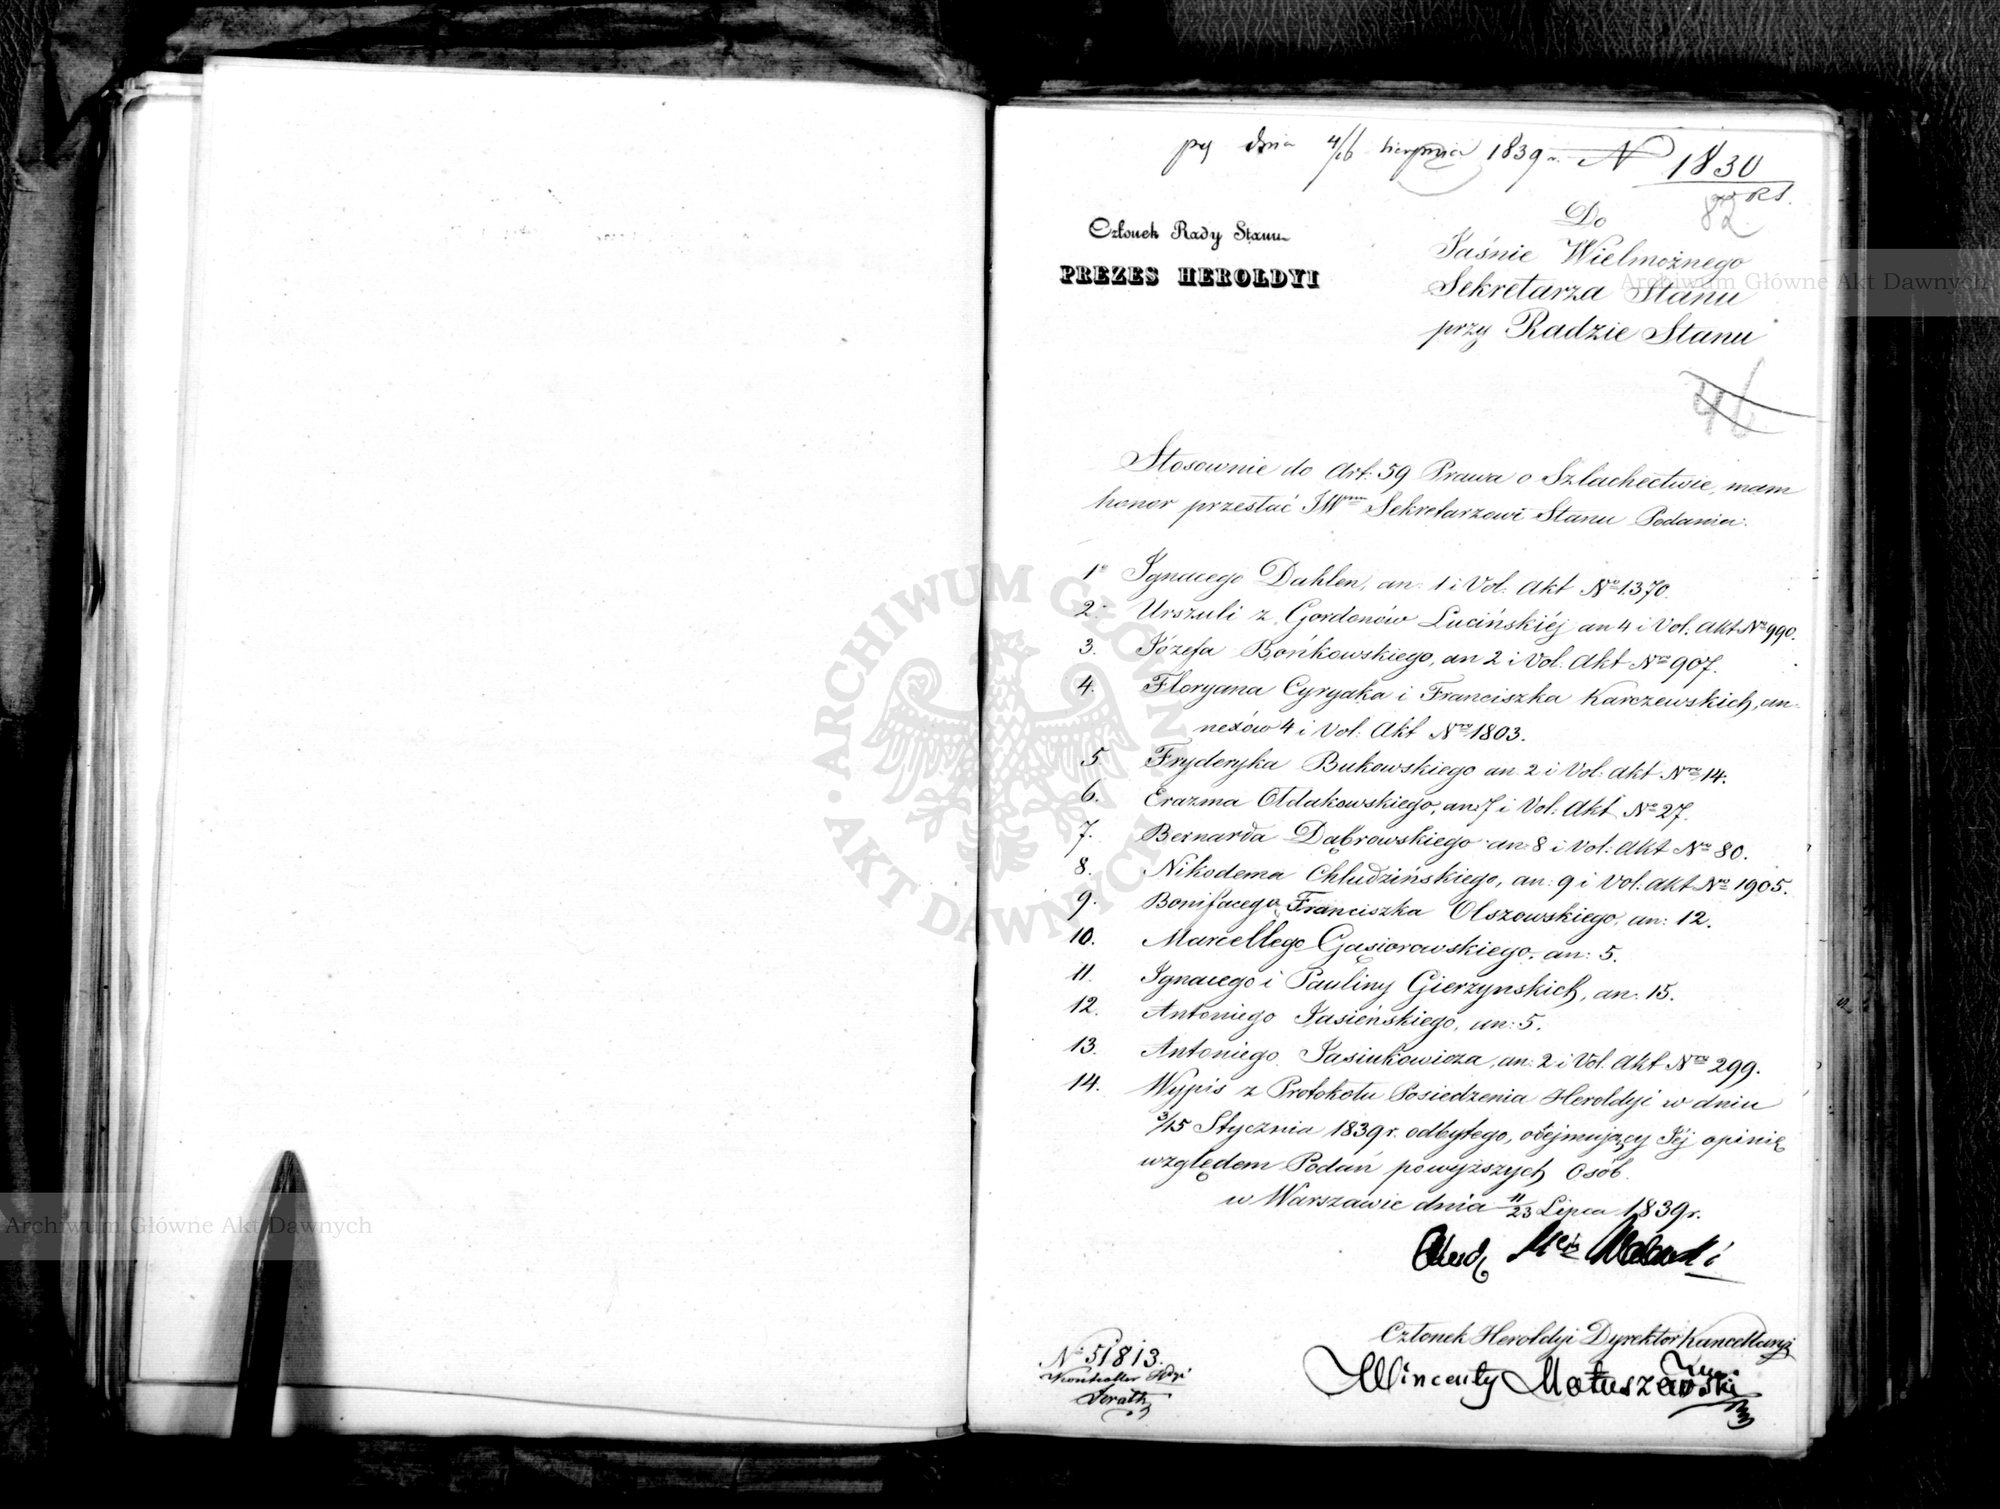 dnia 4/16 sierpnia 1839 r. N 1830
RS.
82
Członek Rady Stanu
PREZES HEROLDYI
Do
Jaśnie Wielmożnego
Sekretarza Stanu
przy Radzie Stanu
46
Stosownie do Art: 59 Prawa o Szlachectwie, mam
honor przesłać JWmu Sekretarzowi Stanu Podania:
1o Ignacego Dahlen, an: 1 i Vol: Akt No 1370.
2. Urszuli z Gordonów Lucińskiéj an 4 i Vol: Akt Nro 990.
3. Józefa Bońkowskiego, an 2 i Vol: Akt Nro 907.
4. Floryana Cyryaka i Franciszka Karczewskich, an-
nexów 4 i Vol: Akt Nro 1803.
5. Fryderyka Bukowskiego an. 2 i Vol: Akt Nro 14.
6. Erazma Ołdakowskiego, an: 7 i Vol: Akt No 27.
7. Bernarda Dąbrowskiego an: 8 i Vol: Akt Nro 80.
8. Nikodema Chludzińskiego, an: 9 i Vol: Akt Nro 1905.
9. Bonifacego, Franciszka Olszowskiego, an: 12.
10. Marcellego Gąsiorowskiego, an: 5.
11. Ignacego i Pauliny Gierzynskich, an: 15.
12. Antoniego Jasieńskiego, an: 5.
13. Antoniego Jasiukowicza, an: 2 i Vol. Akt Nro 299.
14. Wypis z Protokołu Posiedzenia Heroldyi w dniu
3/15 Stycznia 1839 r. odbytego, obejmujący Jéj opinię
względem Podań powyższych Osób.
w Warszawie dnia 11/23 Lipca 1839 r.
Członek Heroldyi Dyrektor Kancellaryi
Wincenty Matuszewski
No 51813.
Kontroller
Archiwum Główne Akt Dawnych
Archiwum Główne Akt Dawnych
ARCHIWUM GŁÓWNE
AKT DAWNYCH